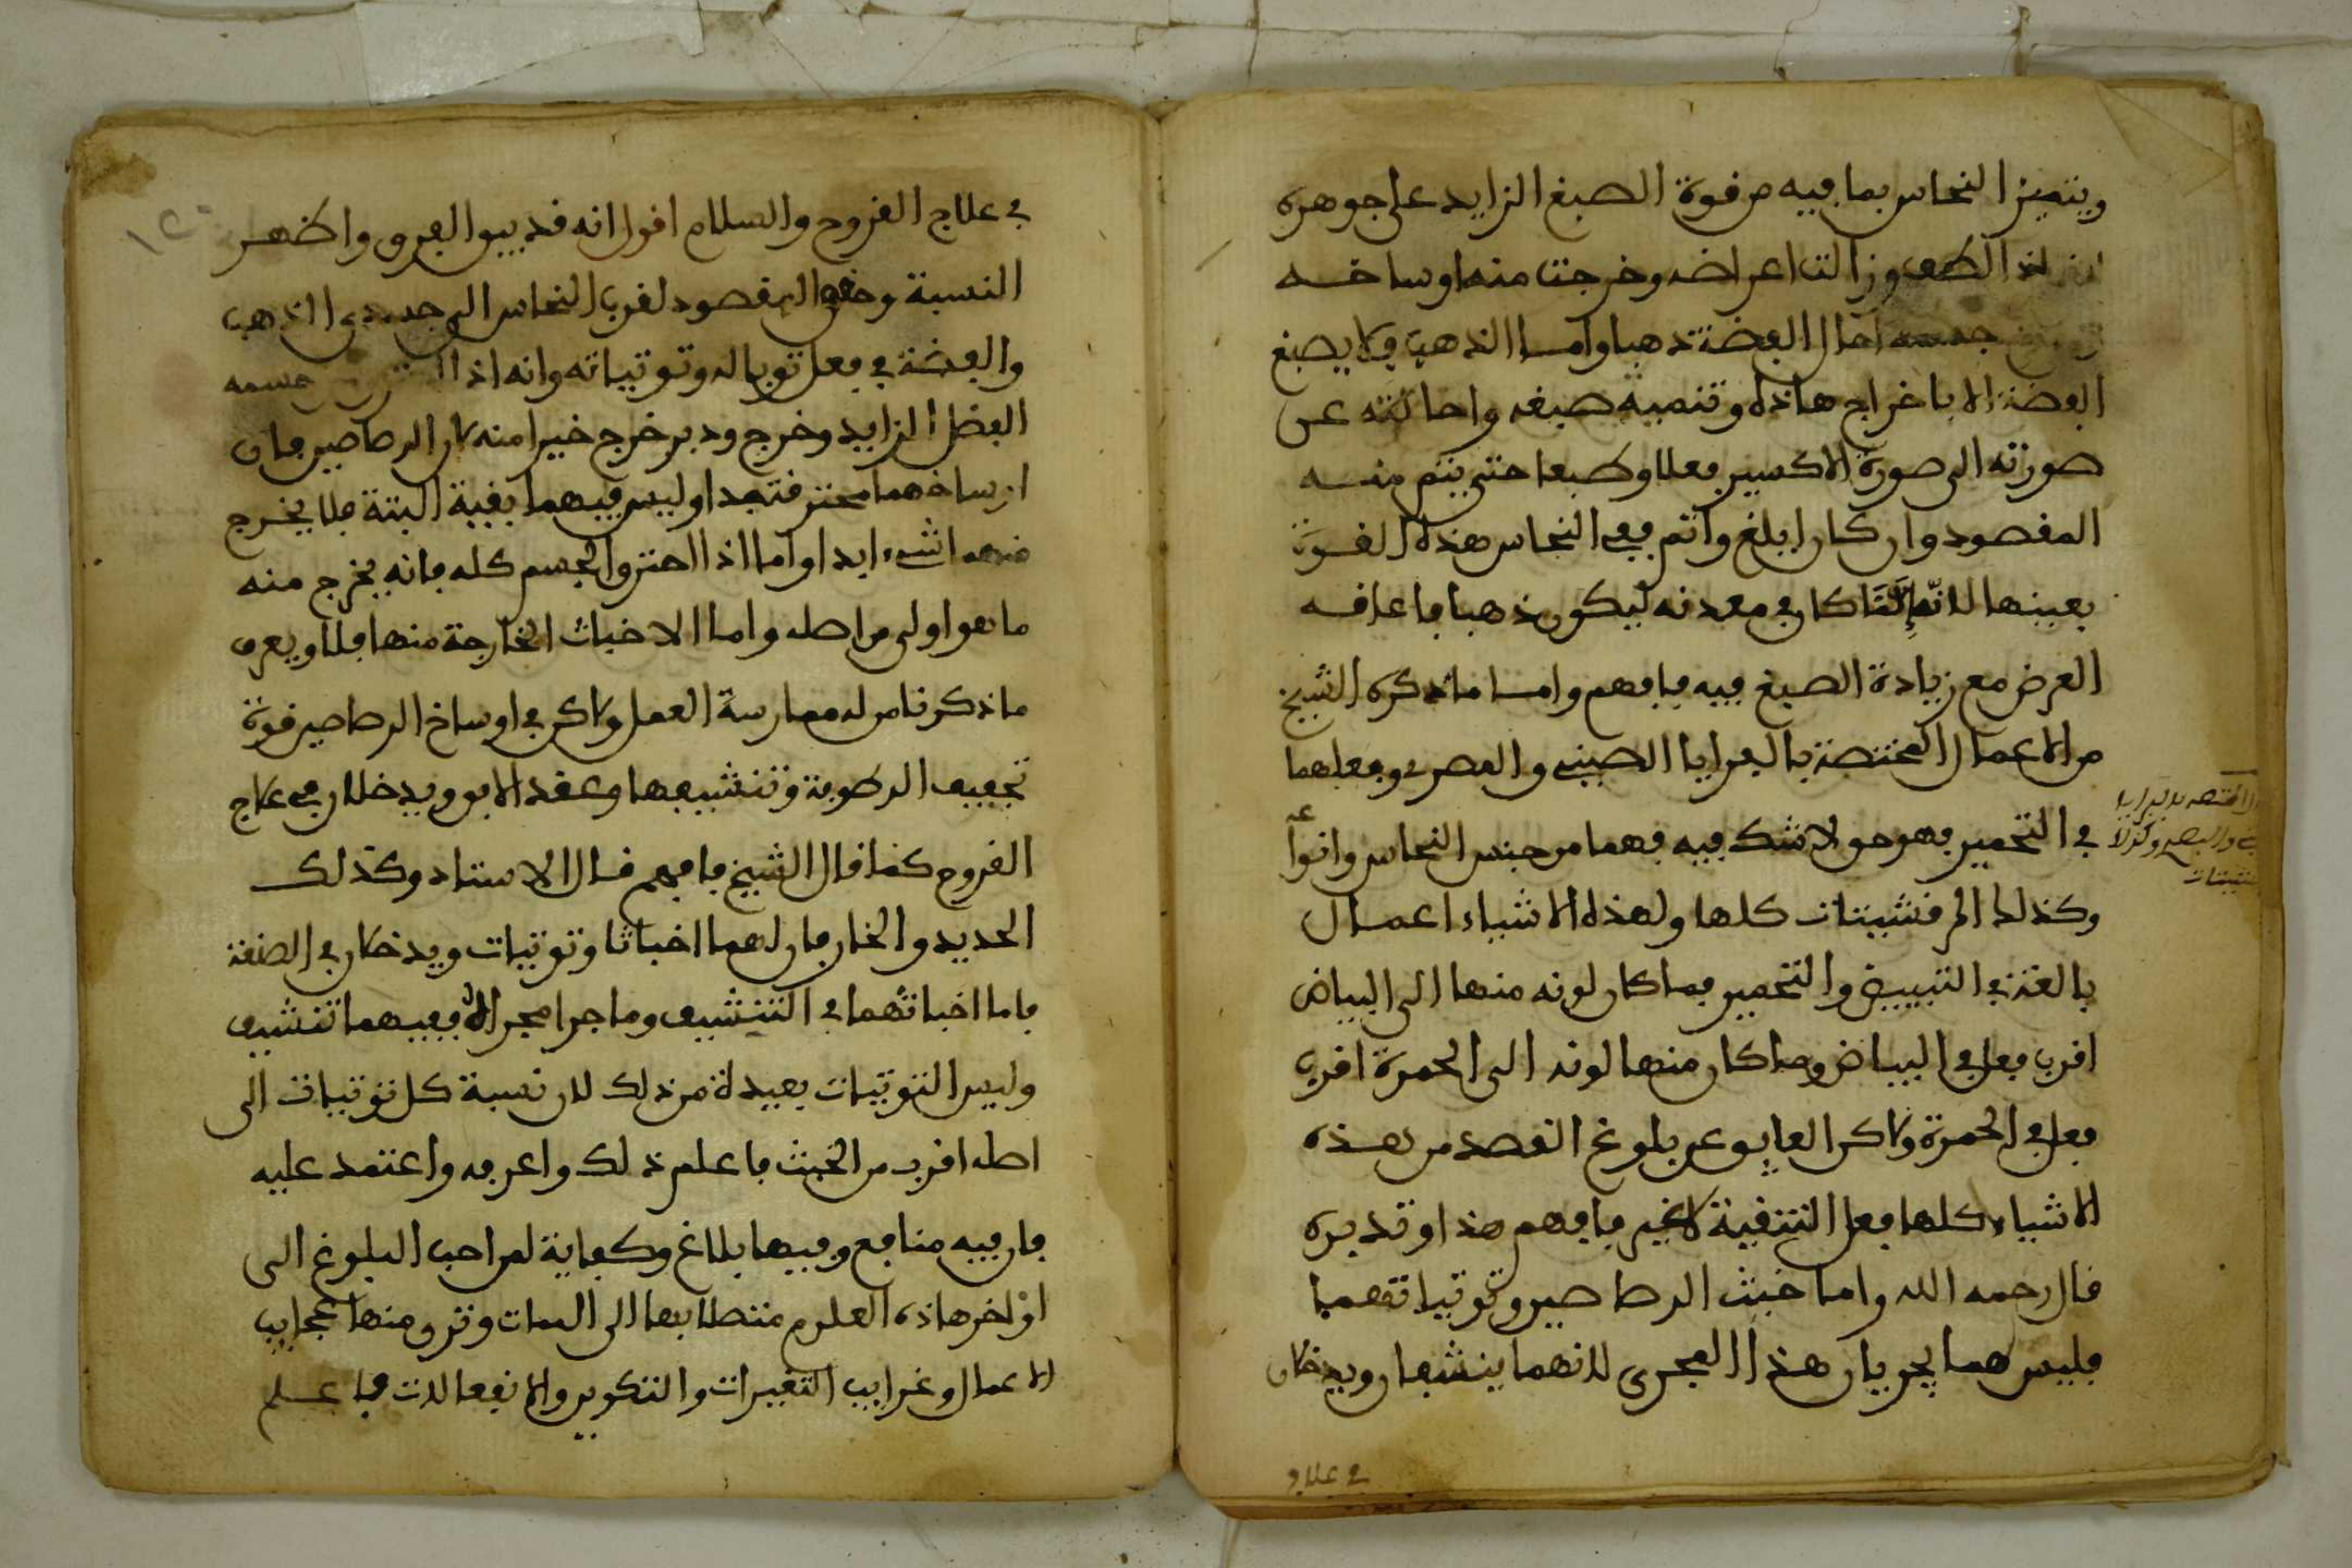 ويتميز النحاس بما فيه من قوة الصبغ الزايد على جوهره
لطف وزالت اعراضه وخرجت منه اوساخه
جسمه احال الفضة ذهبا واما الذهب فلا يصبغ
الفضة الا باخراج هاذه وتنميه صبغه واحالته عن
صورته الى صورة الاكسير فعلا وطبعا حتى يتم منه
المقصود وان كان ابلغ واتم ففي النحاس هذه القوة
بعينها لانه انما كان في معدنه ليكون ذهبا فاعاقه
العرض مع زيادة الصبغ فيه فافهم واما ما ذكره الشيخ
من الاعمال المختصة بالمرايا الصيني والمصري وفعلهما
في التحمير فهو حق لا شك فيه فهما من جنس النحاس وانواعه
وكذلك المرقشيتات كلها ولهذه الاشياء اعمال
بالغة في التبييض والتحمير فما كان لونه منها الى البياض
اقرب فعل في البياض وما كان منها لونه الى الحمرة اقرب
فعل في الحمرة ولاكن العايق عن بلوغ القصد من هذه
الاشياء كلها فعل التنقية لا غير فافهم هذا وتدبره
قال رحمه الله واما خبث الرصاصين وتوتياتهما
فليس هما يجريان هذا المجرى لانهما ينشفان ويدخلان
في علاج
في علاج القروح والسلام اقول انه قد بين الفرق واظهر
النسبة وحقق المقصود لقرب النحاس الى جسدي الذهب
والفضة في فعل توباله وتوتياته وانه اذا جسمه
الفضل الزايد وخرج ودبر خرج خيرا منه لان الرصاصين فان
اوساخهما محترقة جدا وليس فيهما بقية البتة فلا يخرج
منهما شيء ابدا واما اذا احترق الجسم كله فانه يخرج منه
ما هو اولى من اصله واما الاخباث الخارجة منها فلا ويعرف
ما ذكرنا من له ممارسة العمل ولاكن في اوساخ الرصاصين قوة
تجفيف الرطوبة وتنشيفها وعقد الابق ويدخلان في علاج
القروح كما قال الشيخ فافهم قال الاستاد وكذلك
الحديد والخار فان لهما اخباثا وتوتيات ويدخلان في الصنعة
فاما اخباثهما في التنشيف وما جرا مجراه ففيهما تنشيف
وليس التوتيات بعيدة من ذلك لان نسبة كل توتيات الى
اصله اقرب من الخبث فاعلم ذلك واعرفه واعتمد عليه
فان فيه منافع وفيها بلاغ وكفاية لمن احب البلوغ الى
اواخر هاذه العلوم منتطلا بها الى الممات وترو منها عجايب
الاعمال وغرايب التغييرات والتكوين والانفعالات فاعلم